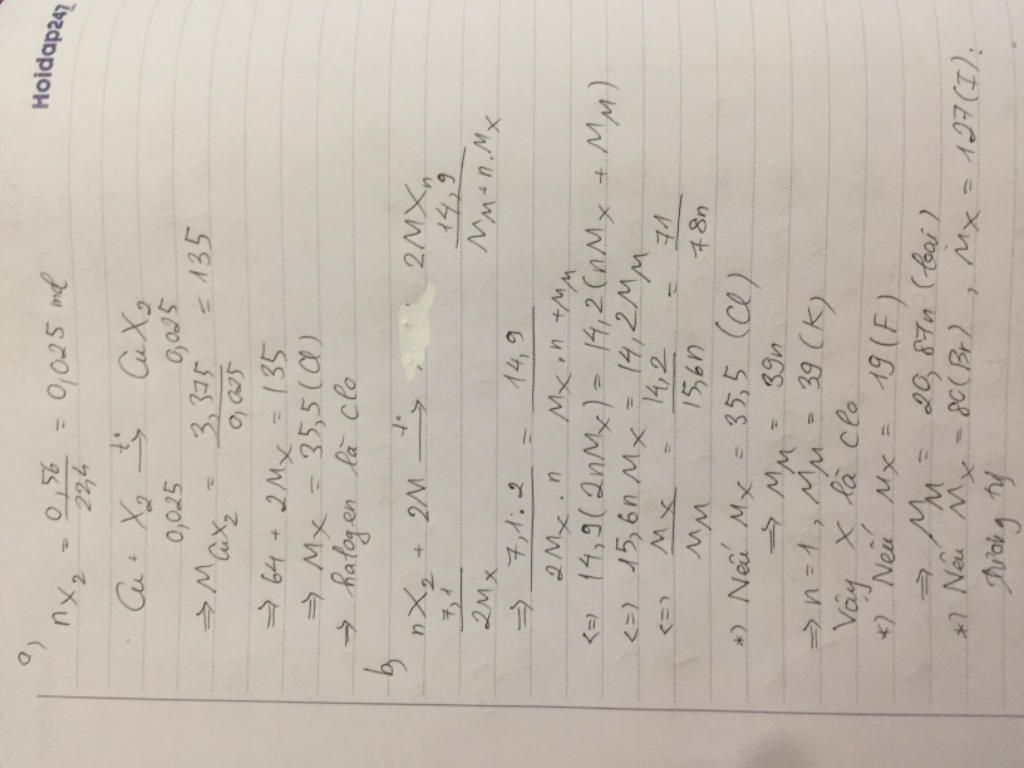 Hoidap247
a)
nX₂ = 0,56/22,4 = 0,025 mol
Cu + X₂ →(t°) CuX₂
0,025 0,025
=> M CuX₂ = 3,375/0,025 = 135
=> 64 + 2Mx = 135
=> Mx = 35,5 (Cl)
→ halogen là Clo
b)
nX₂ + 2M →(t°) 2MXn
7,1/2Mx 14,9/(MM + n.Mx)
=> (7,1.2)/(2Mx.n) = 14,9/(Mx.n + MM)
<=> 14,9(2nMx) = 14,2(nMx + MM)
<=> 15,6nMx = 14,2MM
<=> Mx/MM = 14,2/15,6n = 71/78n
*) Nếu Mx = 35,5 (Cl)
=> MM = 39n
=> n = 1, MM = 39 (K)
Vậy X là Clo
*) Nếu Mx = 19 (F)
=> MM = 20,87n (loại)
*) Nếu Mx = 80(Br), Mx = 127(I).
tương tự